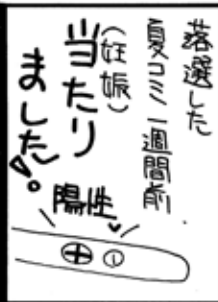 落選した
夏コミ一週間前、
(妊娠)
当たり
ました!。
陽性